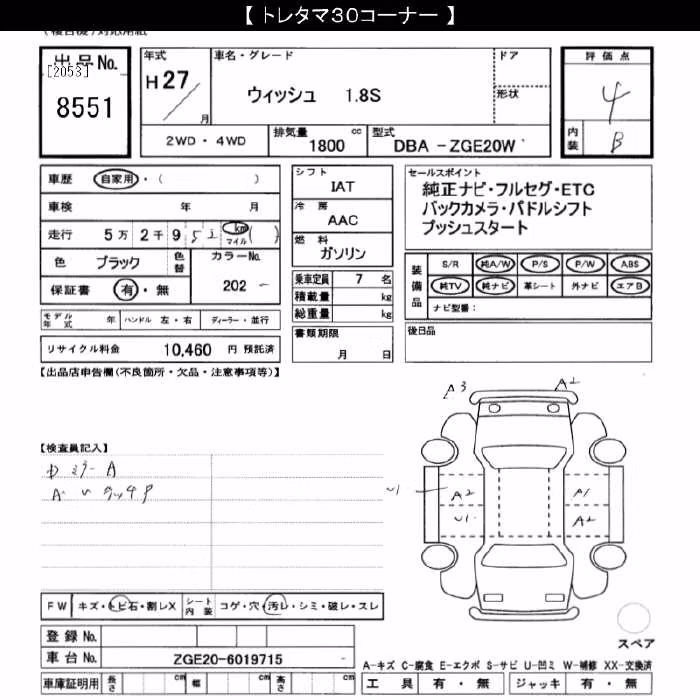 【 トレタマ30コーナー 】
出品No.
[2053]
8551
年式
H27
月
車名・グレード
ウィッシュ 1.8S
ドア
形状
評価点
4
内装
B
2WD・4WD
排気量
1800 cc
型式
DBA -ZGE20W
車歴 自家用・( )
車検 年 月
走行 5万 2千 9 52 km マイル ( )
色 ブラック 色替
カラーNo.
202 -
保証書 有・無
モデル年式 年 ハンドル 左・右 ディーラー・並行
リサイクル料金 10,460 円 預託済
シフト
IAT
冷房
AAC
燃料
ガソリン
乗車定員 7 名
積載量 kg
総重量 kg
書類期限
月 日
セールスポイント
純正ナビ・フルセグ・ETC
バックカメラ・パドルシフト
プッシュスタート
装備品
S/R 純A/W P/S P/W ABS
純TV 純ナビ 革シート 外ナビ エアB
ナビ型番:
後日品
【出品店申告欄(不良箇所・欠品・注意事項等)】
【検査員記入】
ミラー A
A3
A2
U1
A2
U1
A1
A2
FW キズ・トビ石・割レX
シート内装 コゲ・穴・汚レ・シミ・破レ・スレ
登録No.
車台No. ZGE20-6019715 -
車庫証明用 長さ cm 幅 cm 高さ cm
スペア
A-キズ C-腐食 E-エクボ S-サビ U-凹ミ W-補修 XX-交換済
工具 有・無 ジャッキ 有・無